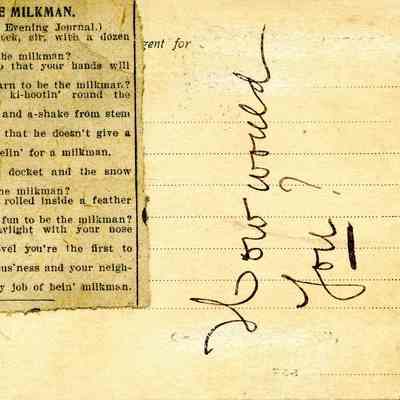 E MILKMAN.
Evening Journal.)
ock, sir, with a dozen
the milkman?
o that your hands will
arn to be the milkman?
ki-hootin' round the
and a-shake from stem
that he doesn't give a
elin' for a milkman.
docket and the snow
he milkman?
rolled inside a feather
fun to be the milkman?
aylight with your nose
vel you're the first to
us'ness and your neigh-
y job of bein' milkman.
gent for
How would
you?